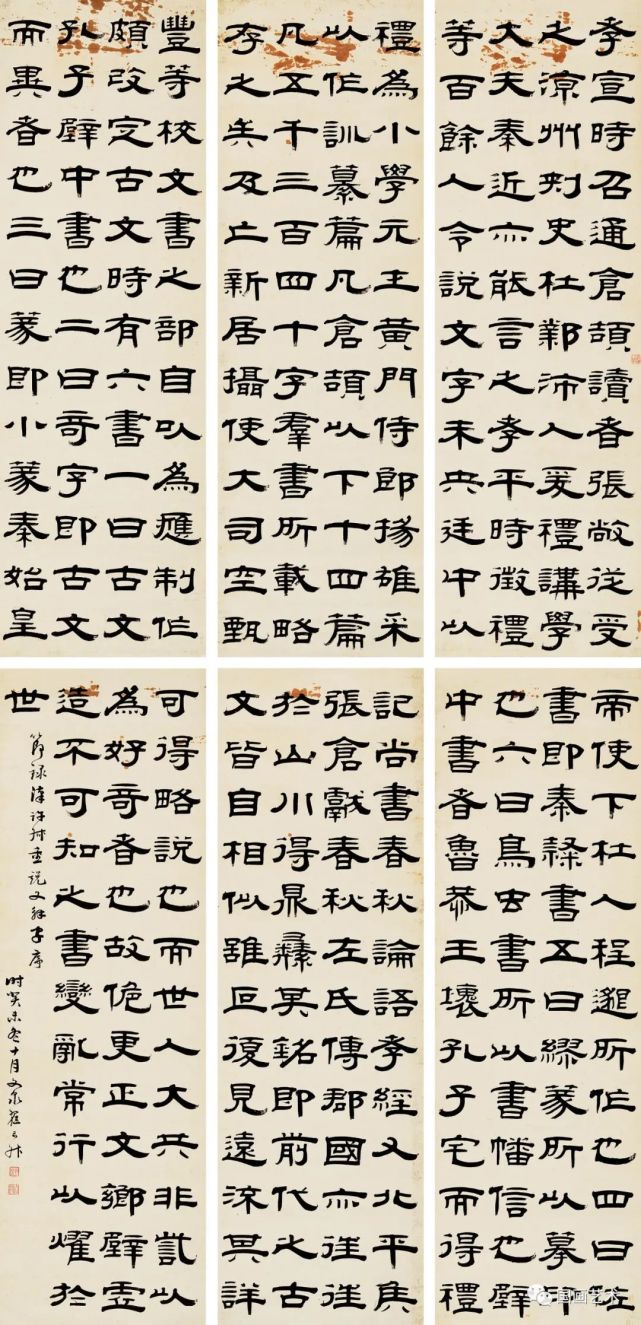 孝宣時召通倉頡讀者張敞從受
之涼州刺史杜鄴沛人爰禮講學
大夫秦近亦能言之孝平時徵禮
等百餘人令說文字未央廷中以
禮為小學元士黃門侍郎揚雄采
以作訓纂篇凡倉頡以下十四篇
凡五千三百四十字羣書所載略
存之矣及亡新居攝使大司空甄
豐等校文書之部自以為應制作
頗改定古文時有六書一曰古文
孔子壁中書也二曰奇字即古文
而異者也三曰篆即小篆秦始皇
帝使下杜人程邈所作也四曰佐
書即秦隸書五曰繆篆所以摹印
也六曰鳥虫書所以書幡信也壁
中書者魯恭王壞孔子宅而得禮
記尚書春秋論語孝經又北平侯
張倉獻春秋左氏傳郡國亦往往
於山川得鼎彝其銘即前代之古
文皆自相似雖叵復見遠流其詳
可得略說也而世人大共非訾以
為好奇者也故詭更正文鄉壁虛
造不可知之書變亂常行以燿於
世
節錄漢許叔重說文解字序
時癸未冬十月文泉翟云升
国画艺术